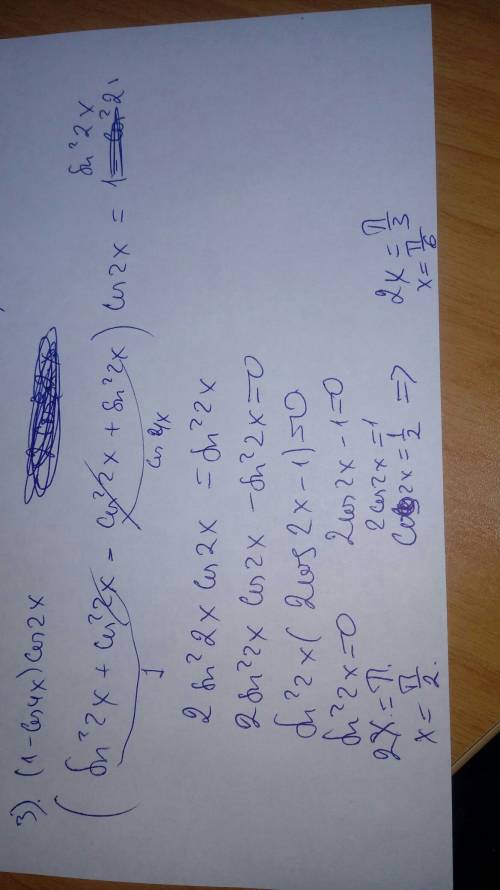 3). (1 - cos4x) cos2x
(sin²2x + cos²2x = cos²2x + sin²2x) cos2x = sin²2x
1
cos4x
2 sin²2x cos2x = sin²2x
2 sin²2x cos2x - sin²2x = 0
sin²2x (2cos2x - 1) = 0
sin²2x = 0 2cos2x - 1 = 0
2x = π. 2cos2x = 1
x = π/2. cos2x = 1/2 => 2x = π/3
x = π/6